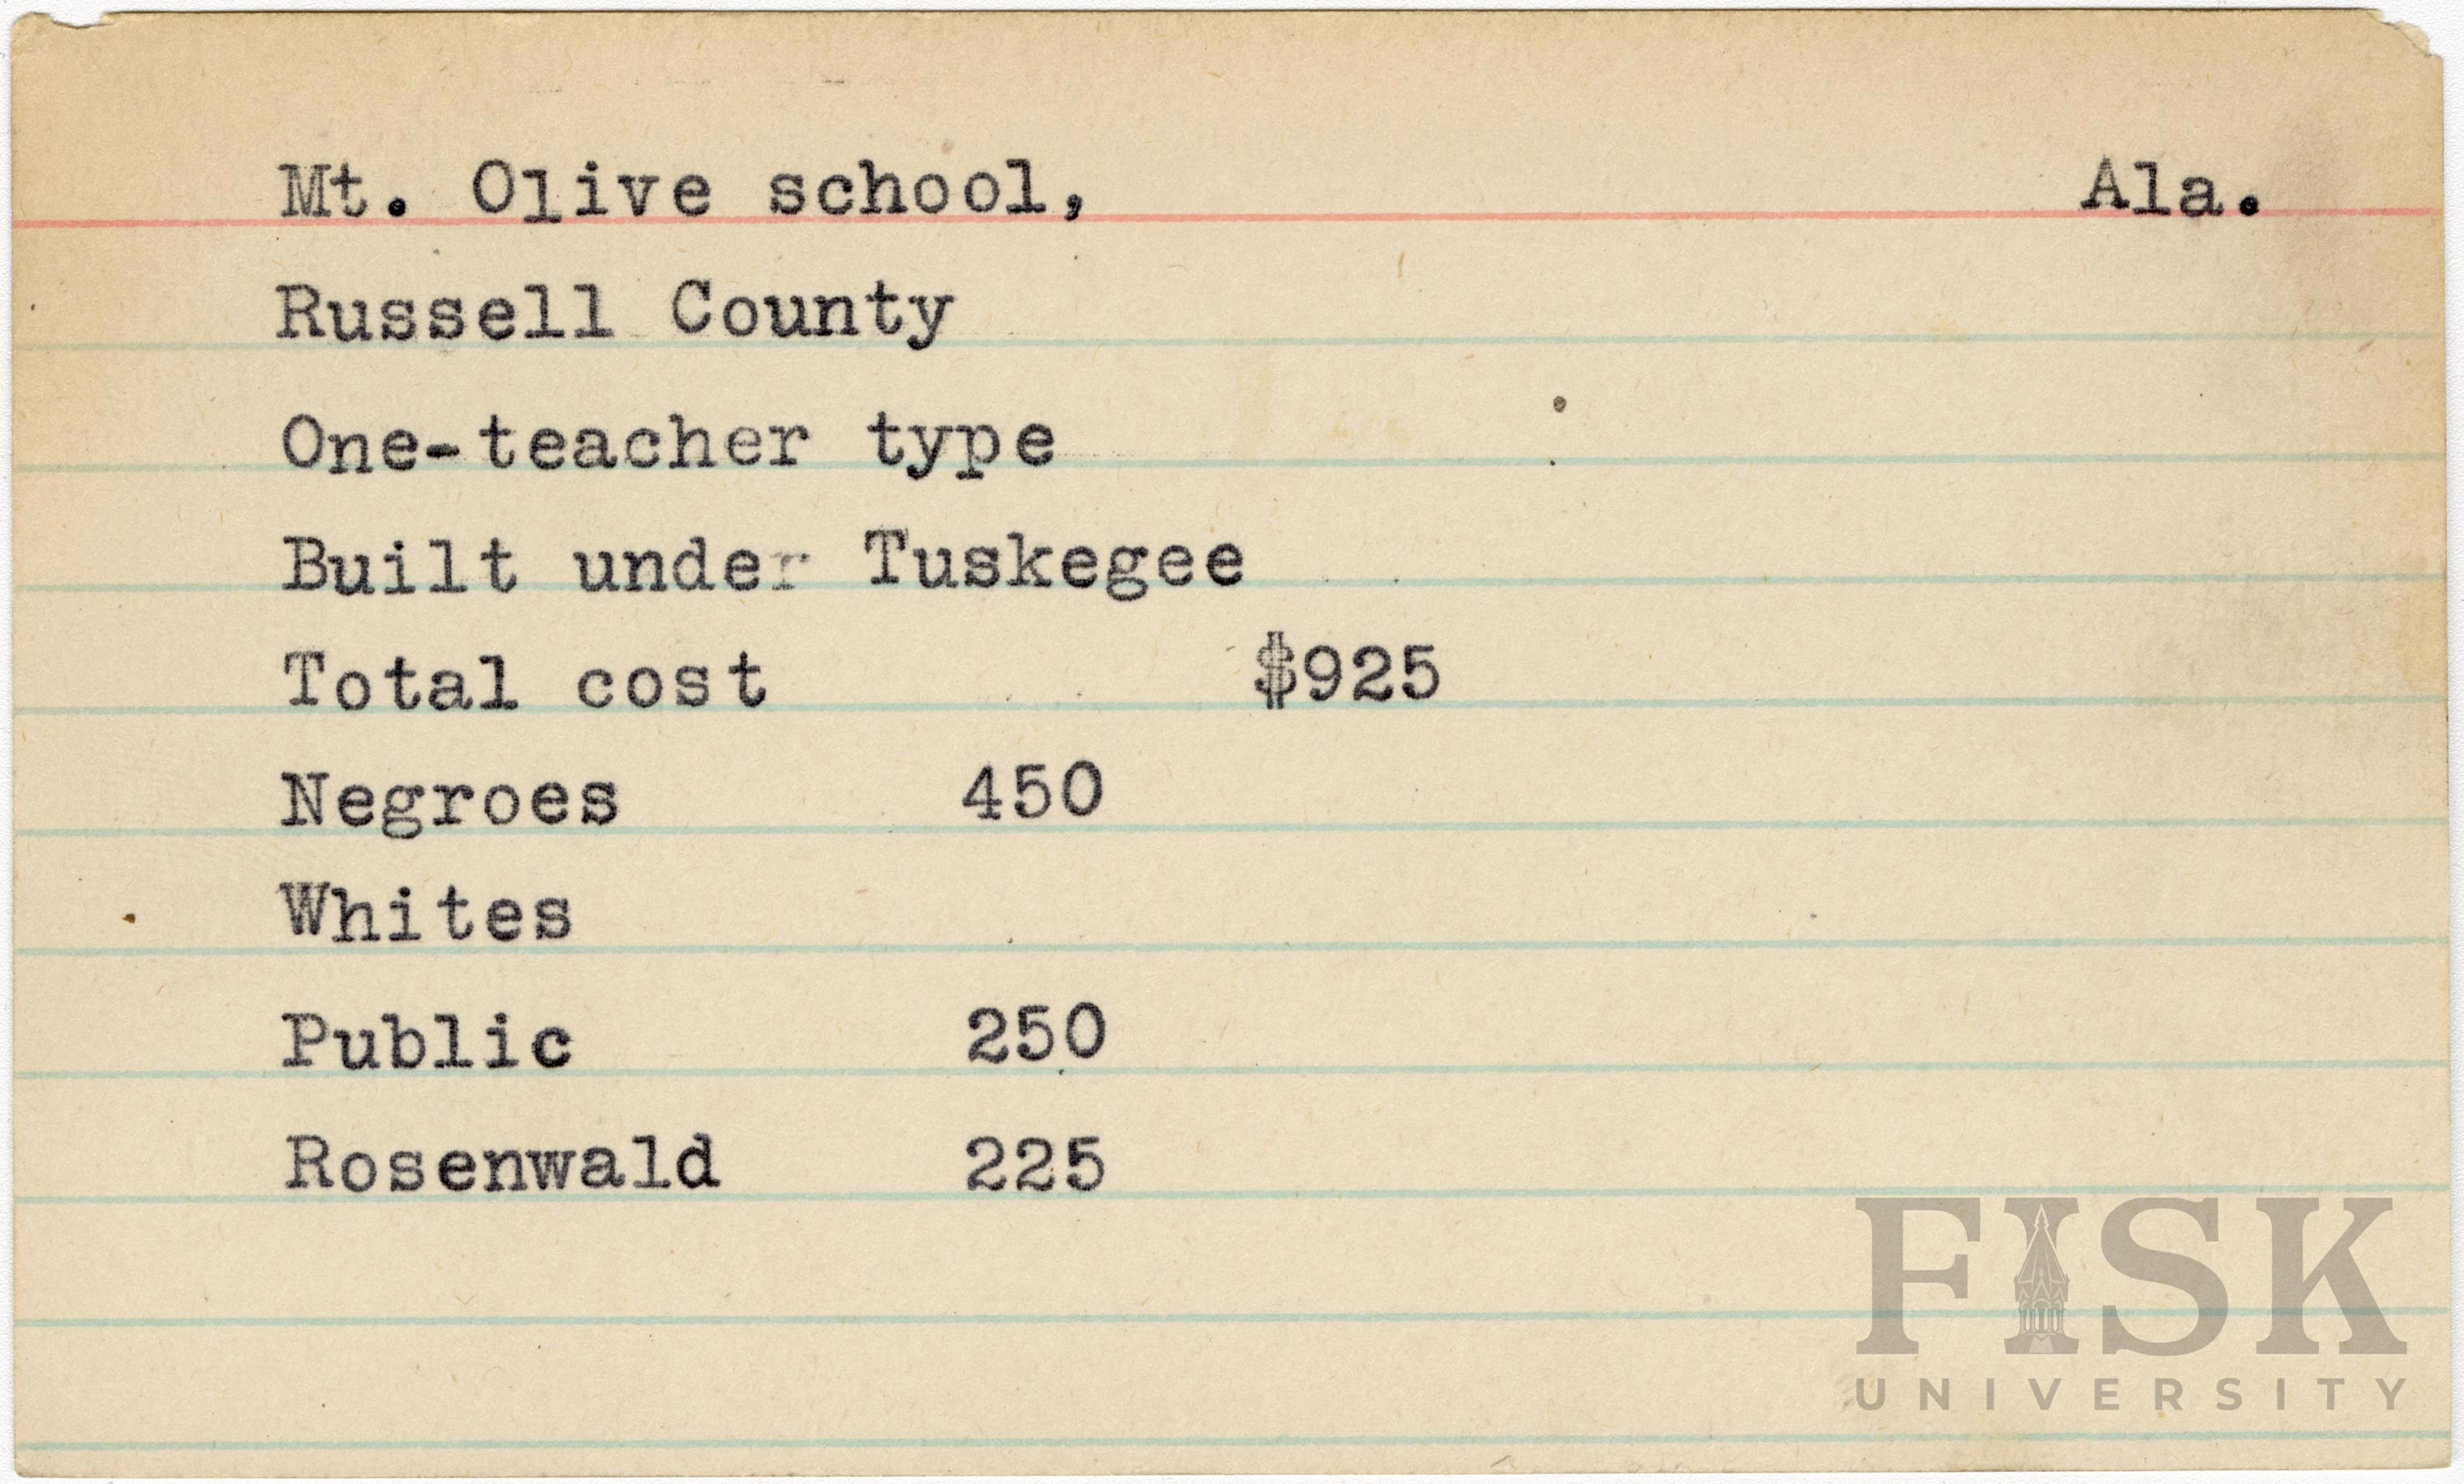 Mt. Olive school, Ala.
Russell County
One-teacher type
Built under Tuskegee
Total cost $925
Negroes 450
Whites
Public 250
Rosenwald 225
FISK
UNIVERSITY